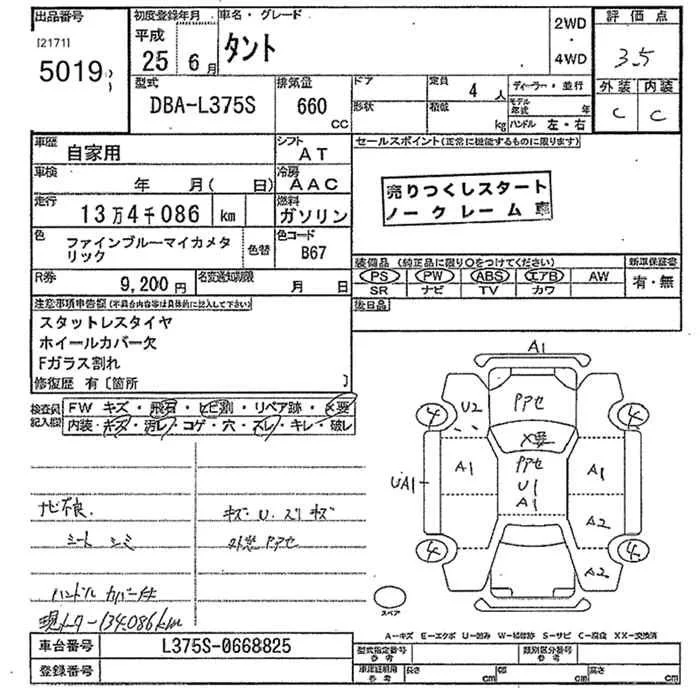 出品番号
[2171]
5019
初度登録年月
平成
25年 6月
車名・グレード
タント
2WD
・
4WD
評価点
3.5
外装 内装
C C
型式
DBA-L375S
排気量
660
CC
ドア
形状
定員
4人
積載
kg
ディーラー・並行
モデル年式 年
ハンドル 左・右
車歴
自家用
シフト
AT
車検
年 月( 日)
冷房
AAC
走行
13万4千086 km
燃料
ガソリン
色
ファインブルーマイカメタリック
色替
色コード
B67
セールスポイント(正常に機能するものに限ります)
売りつくしスタート
ノークレーム
装備品 (純正品に限り○をつけてください)
PS PW ABS エアB AW
SR ナビ TV カワ
新車保証書
有・無
R券
9,200円
名変通知期限
月 日
後日品
注意事項申告欄(不具合内容等は具体的に記入して下さい)
スタットレスタイヤ
ホイールカバー欠
Fガラス割れ
修復歴 有〔箇所 〕
検査員記入欄
FW キズ・飛石・ヒビ割・リペア跡・×要
内装・キズ・汚レ・コゲ・穴・スレ・キレ・破レ
ナビ不良
シート シミ
ハンドル カバー付
現メーター134086km
キズ U. スリ キズ
外窓 PPセ
A1
U2
PPセ
×要
PPセ
U1
A1
A1
UA1
A1
A2
A2
4
4
4
4
スペア
A-キズ E-エクボ U-凹み W-補修跡 S-サビ C-腐食 XX-交換済
車台番号
L375S-0668825
登録番号
型式指定番号
参考
類別区分番号
参考
車庫証明用
参考
長さ cm
幅 cm
高さ cm